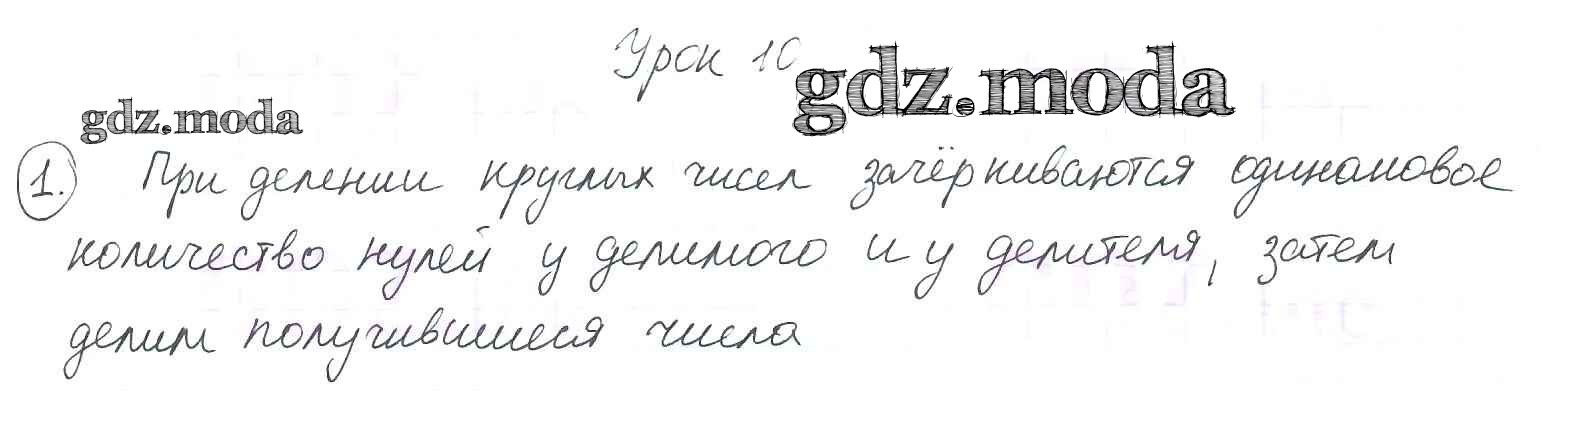 Урок 10
gdz.moda
gdz.moda
1. При делении круглых чисел зачёркиваются одинаковое
количество нулей у делимого и у делителя, затем
делим получившиеся числа